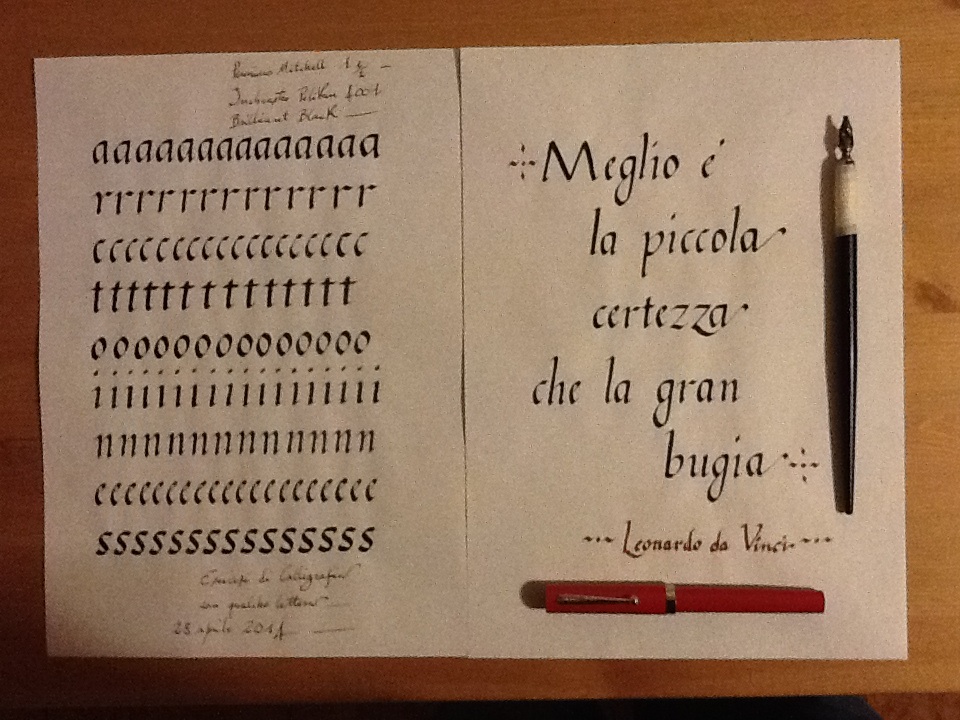 Pennino Mitchell 1 ½
Inchiostro Pelikan 4001
Brilliant Black
aaaaaaaaaaaaaa
rrrrrrrrrrrrr
cccccccccccccccccc
tttttttttttttt
oooooooooooooo
iiiiiiiiiiiiiiiiii
nnnnnnnnnnnnn
eeeeeeeeeeeeeeeeeeee
ssssssssssssssss
Esercizi di Calligrafia
con qualche lettera
28 aprile
Meglio e'
la piccola
certezza
che la gran
bugia
Leonardo da Vinci